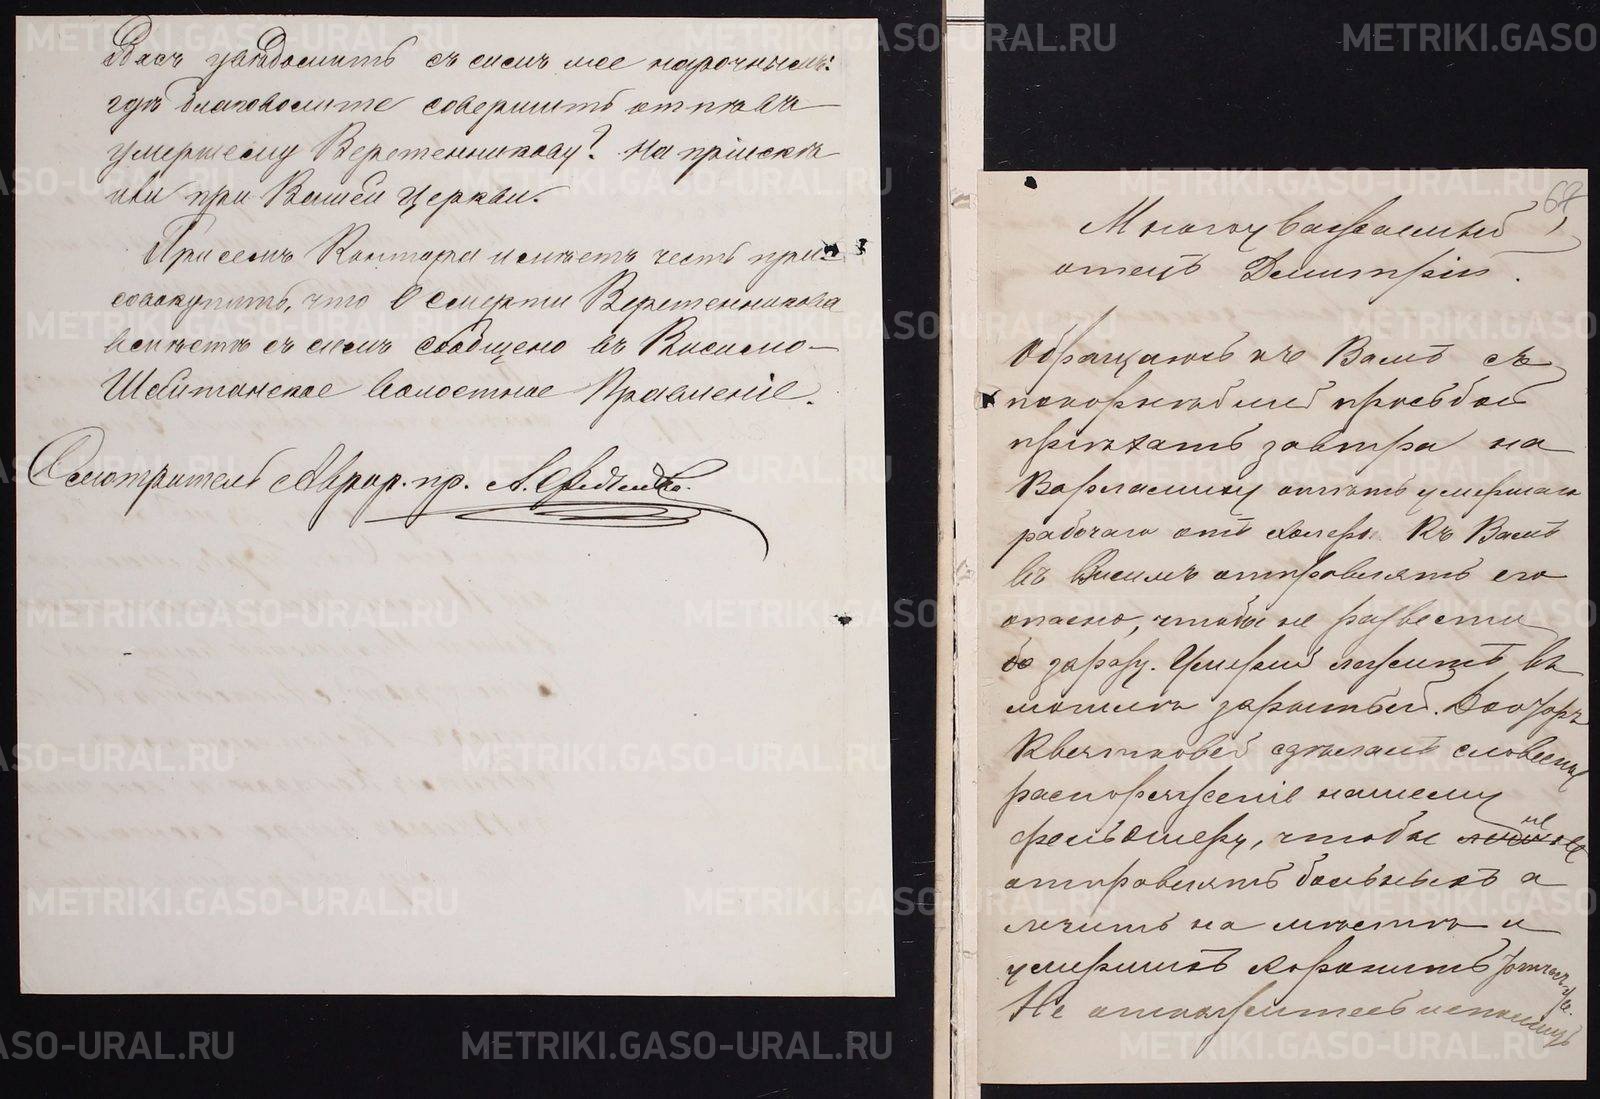 Васъ увѣдомить съ симъ же нарочнымъ:
гдѣ благоволите совершить отпѣвъ
умершему Веретенникову? на пріискѣ
или при Вашей Церкви.
При семъ Контора имѣетъ честь при-
совокупить, что о смерти Веретенникова
вмѣстѣ съ симъ сообщено въ Висимо-
Шайтанское Волостное Правленіе.
Смотритель Аврор. пр. А.
67
Многоуважаемый
отецъ Димитрій.
Обращаюсь къ Вамъ съ
покорнѣйшей просьбой
пріѣхать завтра на
Варламиху отпѣть умершаго
рабочаго отъ холеры. Къ Вамъ
въ Висимъ отправлять его
опасно, чтобы не развести
заразу. Умершій лежитъ въ
могилѣ зарытый. Докторъ
сдѣлалъ словесное
распоряженіе нашему
фельдшеру, чтобы не
отправлять больныхъ а
лечить на мѣстѣ и
умершихъ хоронить тотчасъ же.
Не откажите исполнить
METRIKI.GASO-URAL.RU